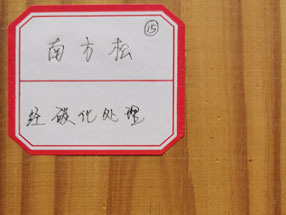 ⑮
南方松
经碳化处理